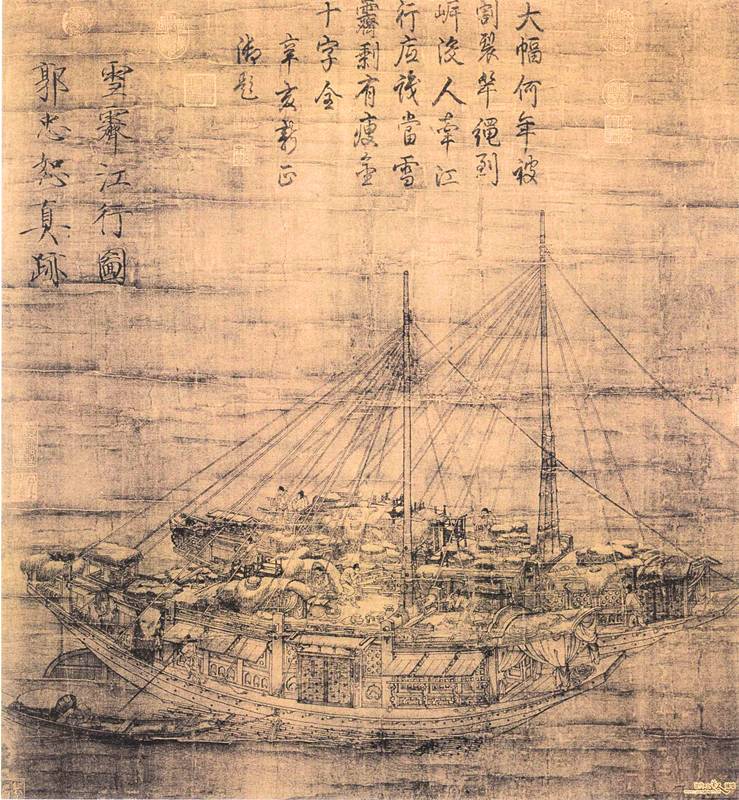 大幅何年被
割裂竿繩到
岸沒人牽江
行應識當雪
霽剩有瘦金
十字全
辛亥新正
御題
雪霽江行圖
郭忠恕真跡